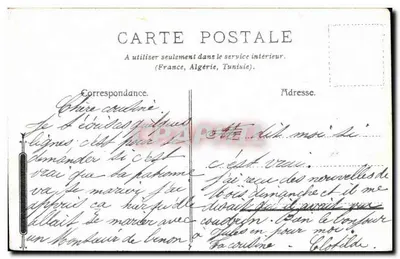 CARTE POSTALE
A utiliser seulement dans le service intérieur.
(France, Algérie, Tunisie).
Correspondance.
Adresse.
Chère cousine
Je t'écris quelques
lignes c'est pour te
demander si c'est
vrai que la
va se marier j'ai
appris ça hier qu'elle
allait se marier avec
un de
dit moi si
c'est vrai.
J'ai reçu des nouvelles de
dimanche et il me
disait qu'il avait
Bien le bonjour
à en pour moi
Ta cousine Clotilde